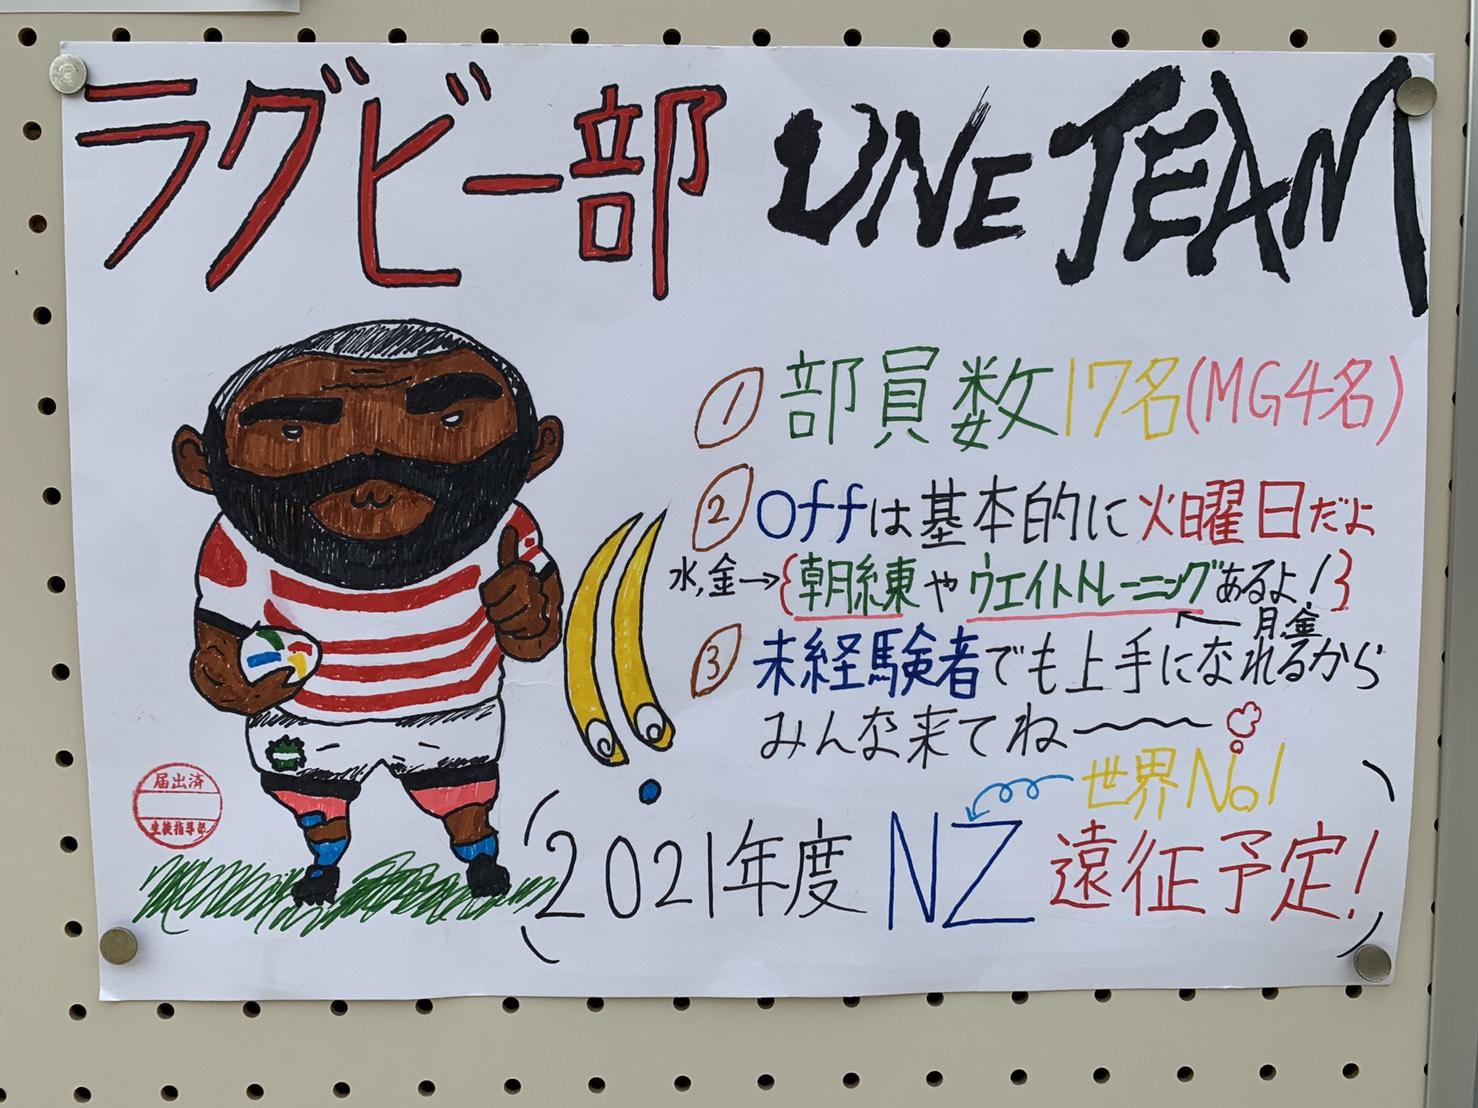 ラグビー部 ONE TEAM
① 部員数17名(MG4名)
② Offは基本的に火曜日だよ
水,金→{朝練やウエイトトレーニングあるよ!}
月,金
③ 未経験者でも上手になれるから
みんな来てね〜
世界No1
(2021年度 NZ 遠征予定!)
届出済
生徒指導部